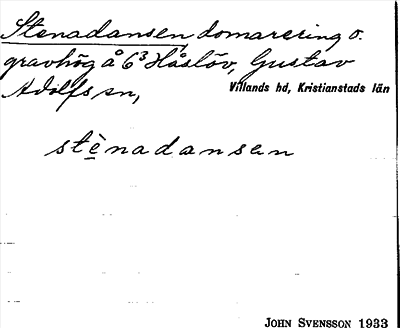 Stenadansen, domarering o.
gravhög å 6³ Håslöv, Gustav
Adolfs sn, Villands hd, Kristianstads län
stènadansen
JOHN SVENSSON 1933